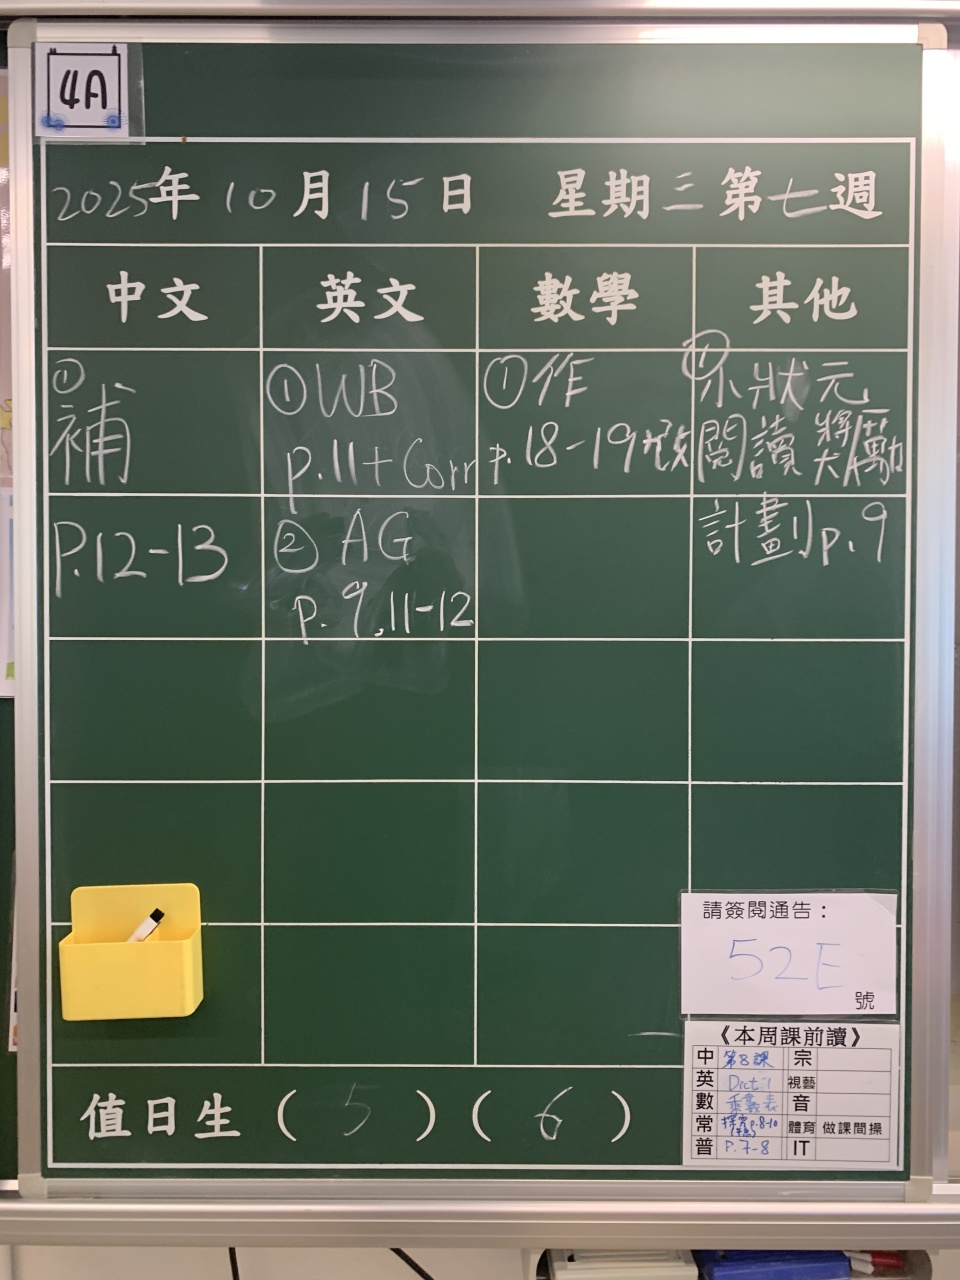 4A
2025年10月15日 星期三第七週
中文 英文 數學 其他
① 補
P.12-13
① WB
p.11+Corr
② AG
p.9,11-12
① 作
p.18-19+改
① 小狀元
閱讀獎勵
計劃p.9
請簽閱通告：
52E
號
《本周課前讀》
中 第8課 宗
英 Dict 1 視藝
數 乘數表 音
常 探究p.8-10 體育 做課間操
普 P.7-8 IT
值日生 (5) (6)